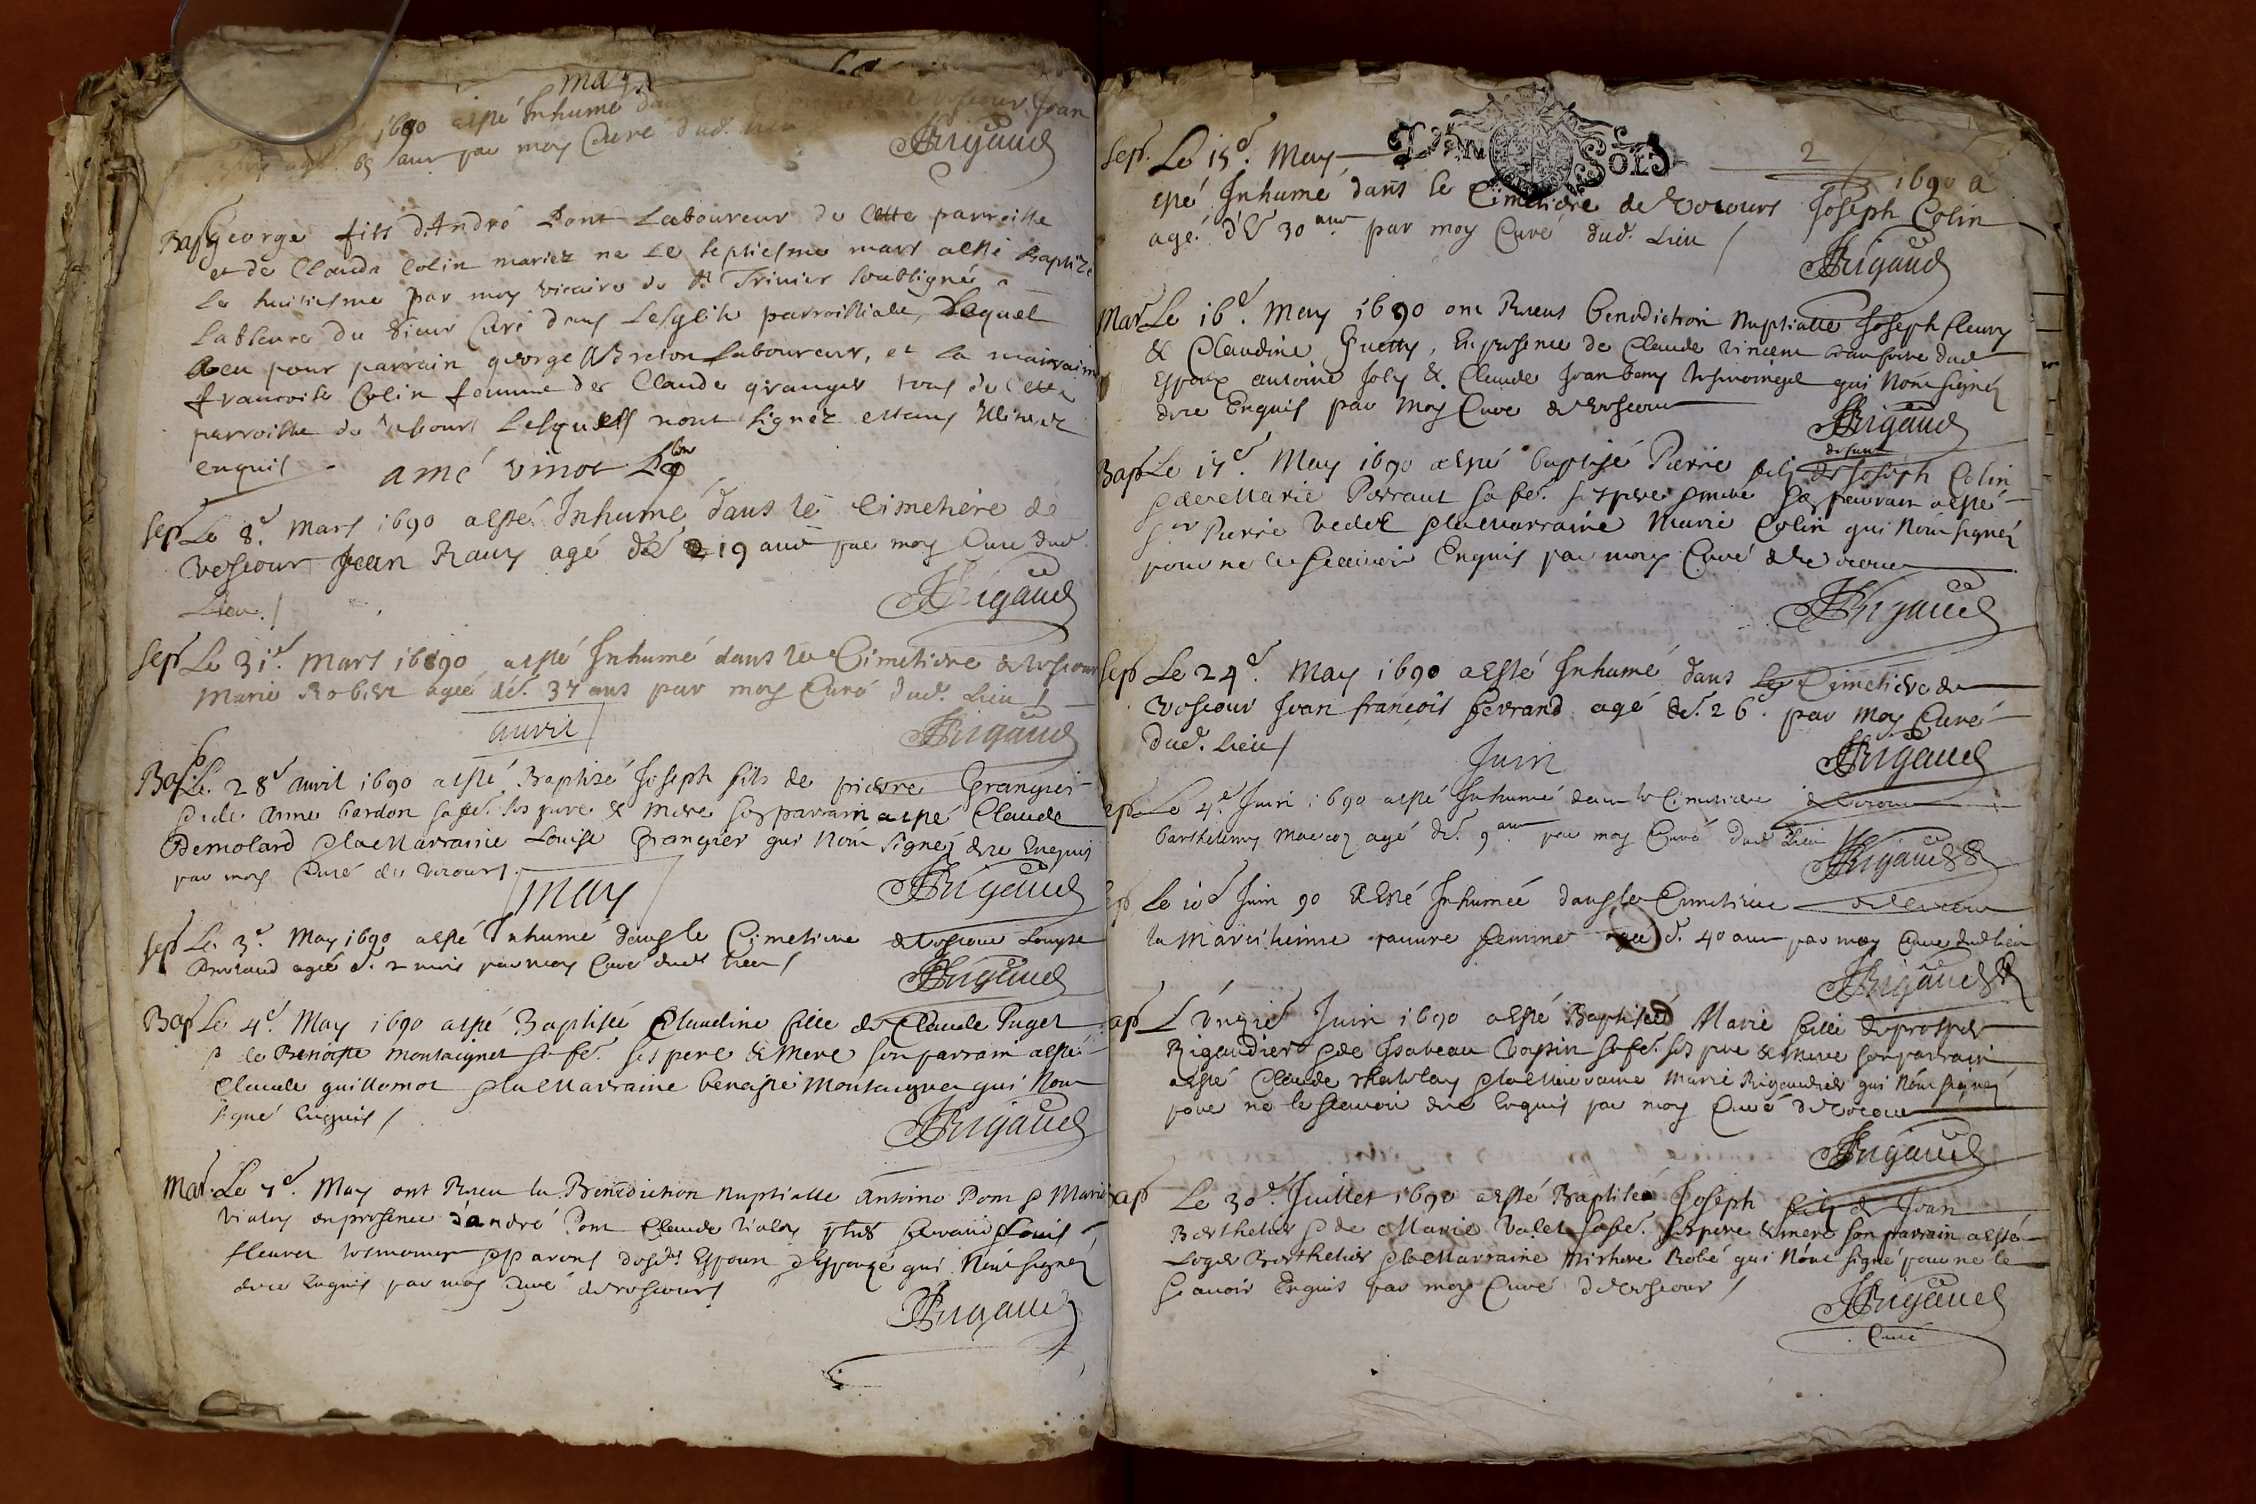 mars
1690 a esté Inhumé Jean
agé 65 ans par moy Curé dud. lieu
JRigaud
Bap George fils d'André Pont Laboureur de Cette parroisse
et de Clauda Colin mariez ne Le septiesme mars a esté Baptizé
Le huitiesme par moy vicaire de St Trivier soubsigné a
Labsence du sieur Curé dans Lesglise parroissialle, Lequel
a eu pour parrain george Breton Laboureur, et La mairraine
francoise Colin femme de Claude granger tous de Cette
perroisse de Lesquels nont signéz estans
enquis amé vinot
Sep Le 8e. Mars 1690 a esté Inhumé dans le Cimetiere de
Vescour Jean Ravy agé de 19 ans par moy Curé dud.
Lieu /
JRigaud
Sep Le 31e. Mars 1690 a esté Inhumé dans le Cimetiere de Vescour
Marie Robert ageé de. 37 ans par moy Curé dud. Lieu /
JRigaud
avril
Bap Le 28e avril 1690 a esté Baptizé Joseph fils de pierre Grangier
& de Anne bardon sa fe. ses pere & mere son parrain a esté Claude
Demolard & la Marraine Louise Grangier qui n'ont signéz de ce Enquis
par moy Curé de Vecours
JRigaud
may
Sep Le 3e. May 1690 a esté Inhumé dans le Cimetiere de Vescour Louyse
ageé d. 2 mois par moy Curé dud. lieu /
JRigaud
Bap Le 4e. May 1690 a esté Baptiseé Claudine fille de Claude Puget
& de Benoiste montaignet sa fe. ses pere & mere son parrain a esté
Claude guillomot & la Marraine benoiste Montaignet qui n'ont
signé Enquis /
JRigaud
Mar. Le 7e. May ont Receu la Benediction nuptialle Antoine Pont & Marie
Vialoy en presence d'andré Pont Claude Vialoy Louis
fleuret & parens desd. Espoux & Espouze qui n'ont signéz
de ce Enquis par moy Curé de vescours
JRigaud
2
Sep. Le 15e. May 1690 a
DEUX SOLS
esté Inhumé dans le Cimetiere de Vecours Joseph Colin
agé d'e 30 ans par moy Curé dud. Lieu /
JRigaud
Mar Le 16e. May 1690 ont Receus benediction Nuptialle Joseph fleury
& Claudine , En presence de Claude Vincent beau frere dud
Espoux antoine Joly & Claude qui n'ont signéz
de ce Enquis par moy Curé de Vescour
JRigaud
defunt
Bap Le 17e. May 1690 a esté baptisé Pierre fils de Joseph Colin
& de Marie Perraut sa fe. ses pere & mere son parrain a esté
Sr Pierre & la Marraine Marie Colin qui n'ont signéz
pour ne le scavoir Enquis par moy Curé de Vecour
JRigaud
Sep Le 24e. May 1690 a esté Inhumé dans Le Cimetiere de
Vescour Jean françois ferrand agé de. 26e. par moy Curé
dud. Lieu /
JRigaud
Juin
Sep Le 4e. Juin 1690 a esté Inhumé dans le Cimetiere de Vecour
barthelemy agé de. 9 ans par moy Curé dud. Lieu
JRigaud
Sep Le 10e Juin 90 a Esté Inhumeé dans le Cimetiere de Vecour
la pauvre femme ageé d. 40 ans par moy Curé dud lieu
JRigaud
Bap L'ònzie Juin 1690 a esté Baptiseé Marie fille de prosper
Rigaudier & de Isabeau sa fe. ses pere & mere son parrain
a esté Claude & la Marraine Marie Rigaudier qui n'ont signez
pour ne le scavoir de ce Enquis par moy Curé de Vecour
JRigaud
Bap Le 30e. Juillet 1690 a esté Baptisé Joseph fils de Jean
Berthelier & de Marie Valet sa fe. ses pere & mere son parrain a esté
Berthelier & la Marraine Robé qui n'ont signé pour ne le
scavoir Enquis par moy Curé de Vescour /
JRigaud
Curé